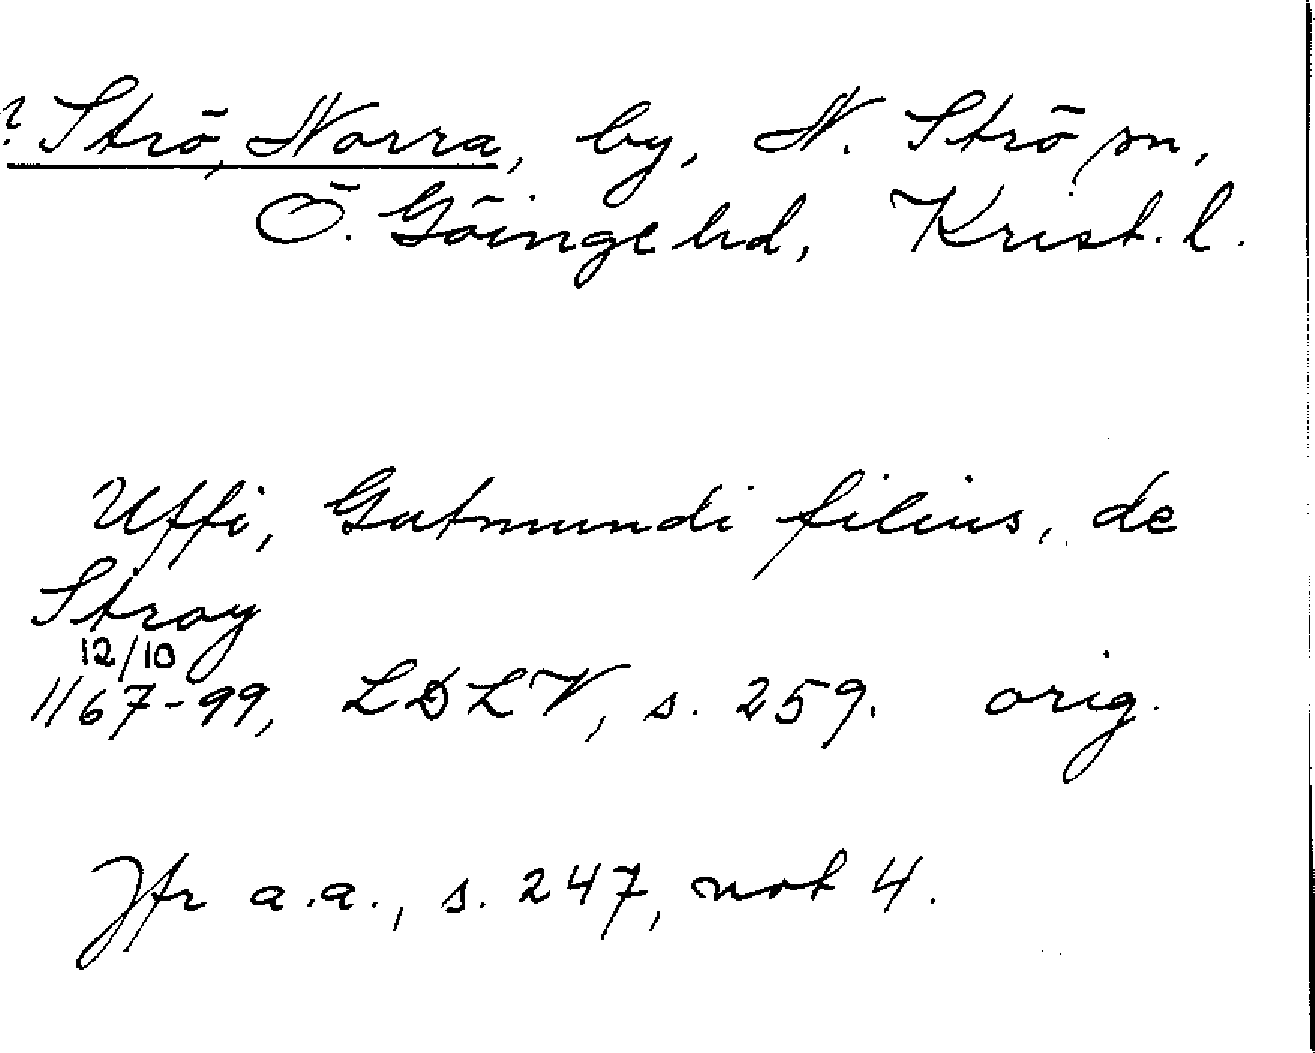 ? Strö, Norra, by, N. Strö sn,
Ö. Göinge hd, Krist. l.
Uffi, Gutmundi filius, de
Stroy
12/10
1167-99, LDLV, s. 259. orig.
Jfr a.a., s. 247, not 4.